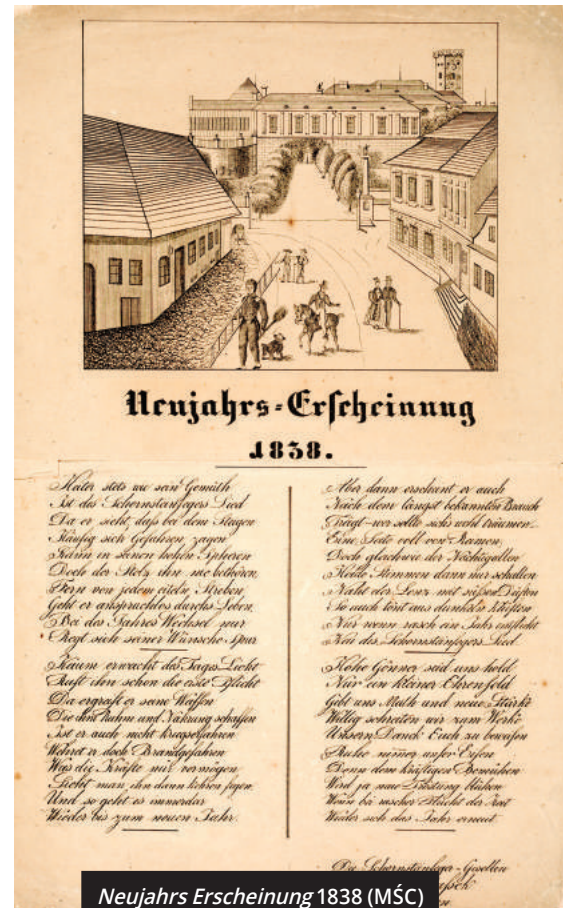 Neujahrs-Erscheinung
1838.
Heiter stets wie sein Gemüth
Ist des Schornsteinfegers Lied
Da er sieht, daß bei dem Steigen
Häufig sich Gefahren zeigen
Kann in seinen hohen Spheren
Doch der Stolz ihn nie bethören,
Fern von jedem eiteln Streben,
Geht er anspruchlos durchs Leben.
Bei des Jahres Wechsel nur
Regt sich seiner Wünsche Spur.
Kaum erwacht des Tages Licht
Ruft ihn schon die erste Pflicht
Da ergreift er seine Waffen
Die ihm Ruhm und Nahrung schaffen
Ist er auch nicht kriegserfahren
Wehret er doch Brandgefahren
Was die Kräfte nur vermögen
Sieht man ihn dann kehren fegen
Und so geht es immerdar
Wieder bis zum neuen Jahr.
Aber dann erscheint er auch
Nach dem längst bekannten Brauch
Trägt wer sollte sich's wohl träumen
Eine Seite voll von Reimen,
Doch gleichwie der Nachtigallen
Holde Stimmen dann nur schallen
Naht der Lenz mit süßen Düften
So auch tönt aus dunkeln Klüften
Nur wenn rasch ein Jahr entflieht
Des Schornsteinfegers Lied.
Hohe Gönner seid uns hold
Nur ein kleiner Ehrensold
Gibt uns Muth und neue Stärke
Willig schreiten wir zum Werke
Unsern Danck Euch zu beweisen
Ruhe nimmer unser Eisen
Denn dem kräftigen Bemühen
Wird ja neue blühen
Wenn bei rascher Flucht der Zeit
Wieder sich das Jahr erneut
Die Schornsteinfeger-Gesellen
Neujahrs Erscheinung 1838 (MŚC)